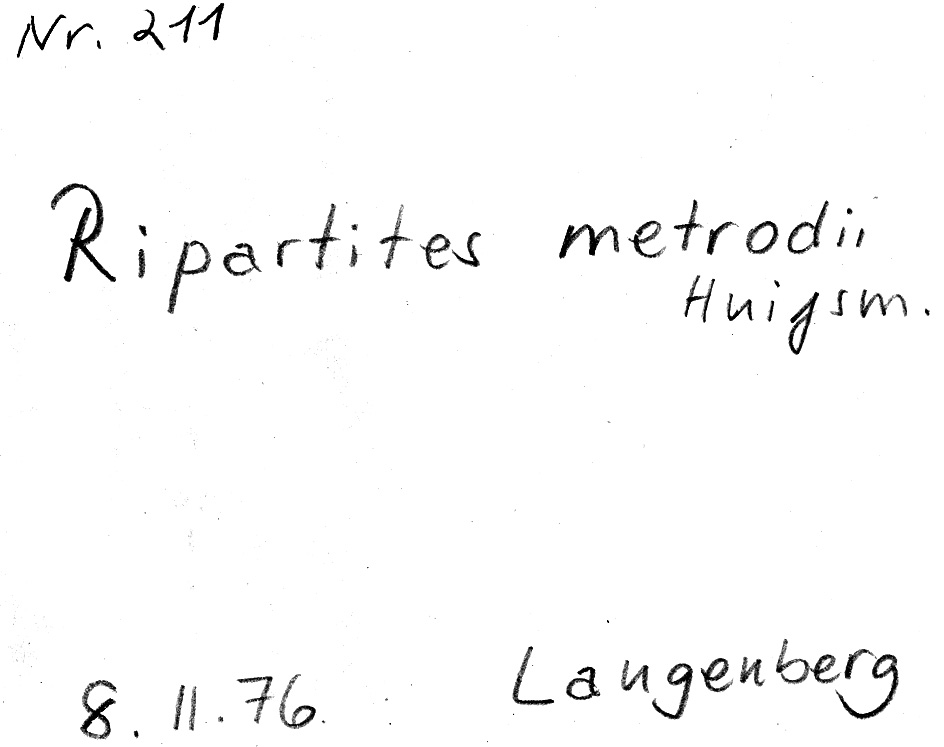 Nr. 211
Ripartites metrodii
Huigsm.
8.11.76. Langenberg